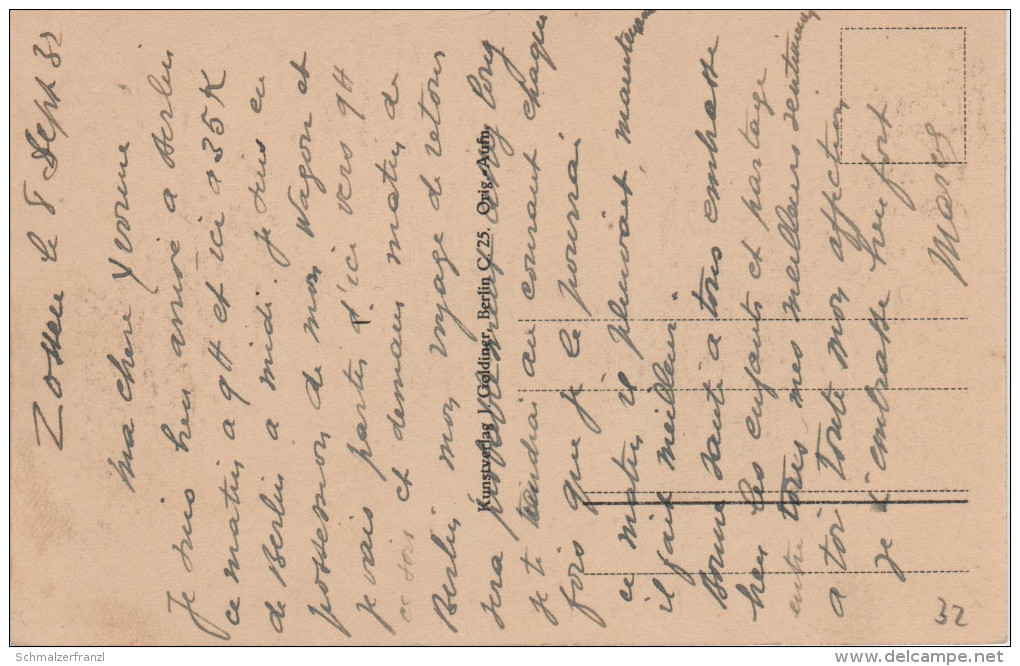 Zossen le 8 Sept 32
Ma chère Yvonne
Je suis bien arrivé à Berlin
ce matin a 9H et ici a 35K
de Berlin a midi. Je suis en
possession de mon Wagon et
je vais partir d'ici vers 9H
ce soir et demain matin de
Berlin, mon voyage de retour
sera long
je te tiendrai au courant chaque
fois que je le pourrai
ce matin il pleuvait, maintenant
il fait meilleur.
bonne santé a tous embrasse
bien les enfants et partage
entre tous mes meilleurs sentiments
a toi toute mon affection
Je t'embrasse bien fort
Marcel
Kunstverlag J. Goldiner, Berlin C/25. Orig.-Aufn.
32
Schmalzerfranzl
delcampe.net